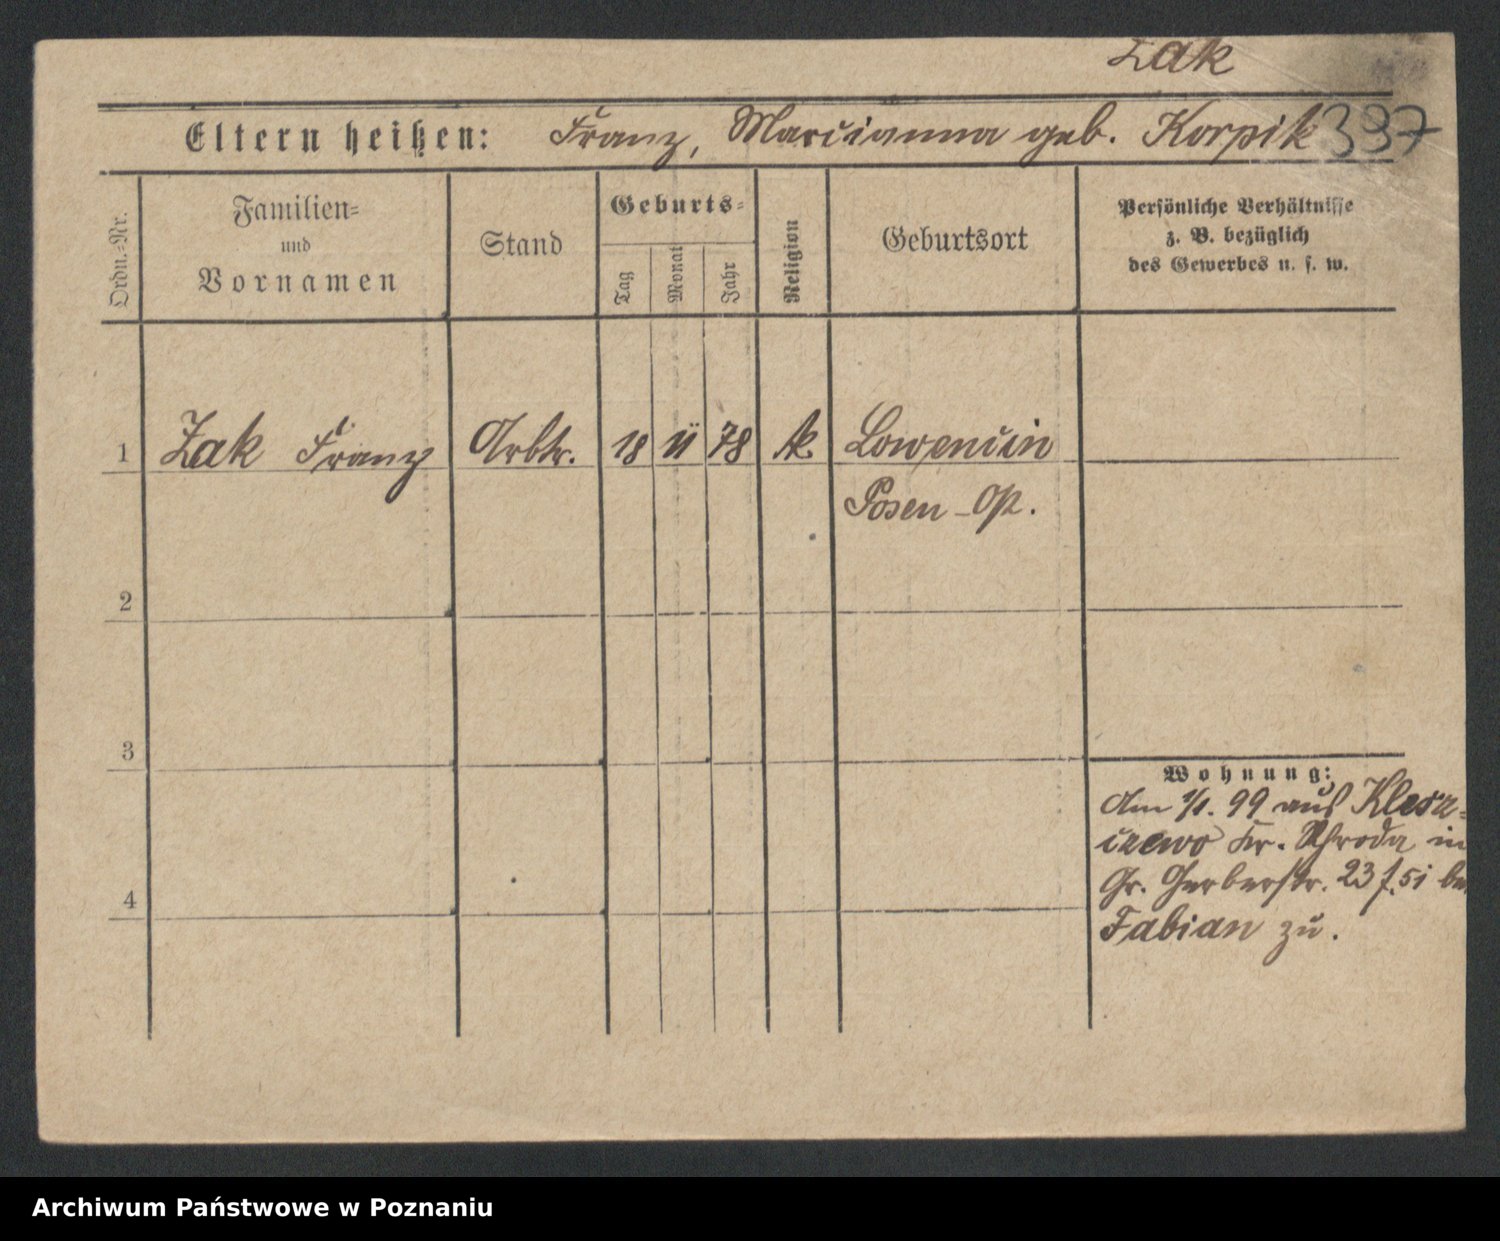 Zak
Eltern heißen: Franz, Marcianna geb. Korpik 397
Ordn.-Nr.
Familien-
und
Vornamen
Stand
Geburts-
Tag
Monat
Jahr
Religion
Geburtsort
Persönliche Verhältnisse
z. B. bezüglich
des Gewerbes u. s. w.
1 Zak Franz Arbtr. 18 11 78 k. Lowencin
Posen-Op.
2
3
4
Wohnung:
Am 1/1. 99 aus Klesz-
czewo Kr. Schroda in
Gr. Gerberstr. 23 f. 51 be
Fabian zu.
Archiwum Państwowe w Poznaniu